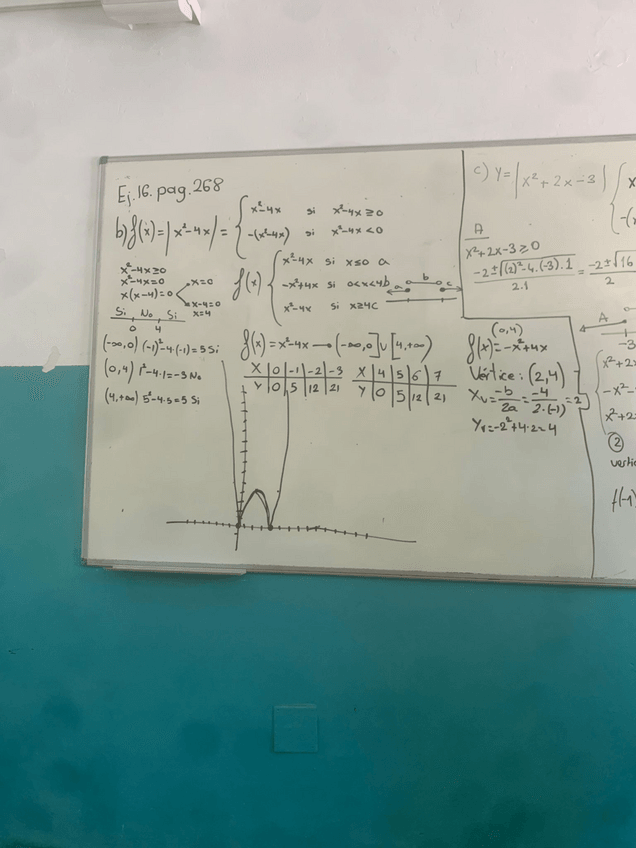 Ej. 16. pag. 268
b) f(x) = |x²-4x| = { x²-4x si x²-4x ≥ 0
-(x²-4x) si x²-4x < 0
x²-4x ≥ 0
x²-4x = 0
x(x-4) = 0 x=0
x-4=0
x=4
Si No Si
0 4
(-∞,0) (-1)²-4·(-1) = 5 Si
(0,4) 1²-4·1 = -3 No
(4,+∞) 5²-4·5 = 5 Si
f(x) { x²-4x si x ≤ 0 a
-x²+4x si 0<x<4 b
x²-4x si x ≥ 4 c
a b c
f(x) = x²-4x → (-∞,0] ∪ [4,+∞)
X 0 -1 -2 -3
Y 0 5 12 21
X 4 5 6 7
Y 0 5 12 21
(0,4)
f(x) = -x²+4x
Vértice: (2,4)
Xv = -b/2a = -4/2·(-1) = 2
Yv = -2²+4·2 = 4
c) Y = |x²+2x-3| { x
-(x
A
x²+2x-3 ≥ 0
-2±√(2)²-4·(-3)·1 / 2·1 = -2±√16 / 2
A
-3
x²+2x
-x²-
x²+2
②
vertic
f(-1)